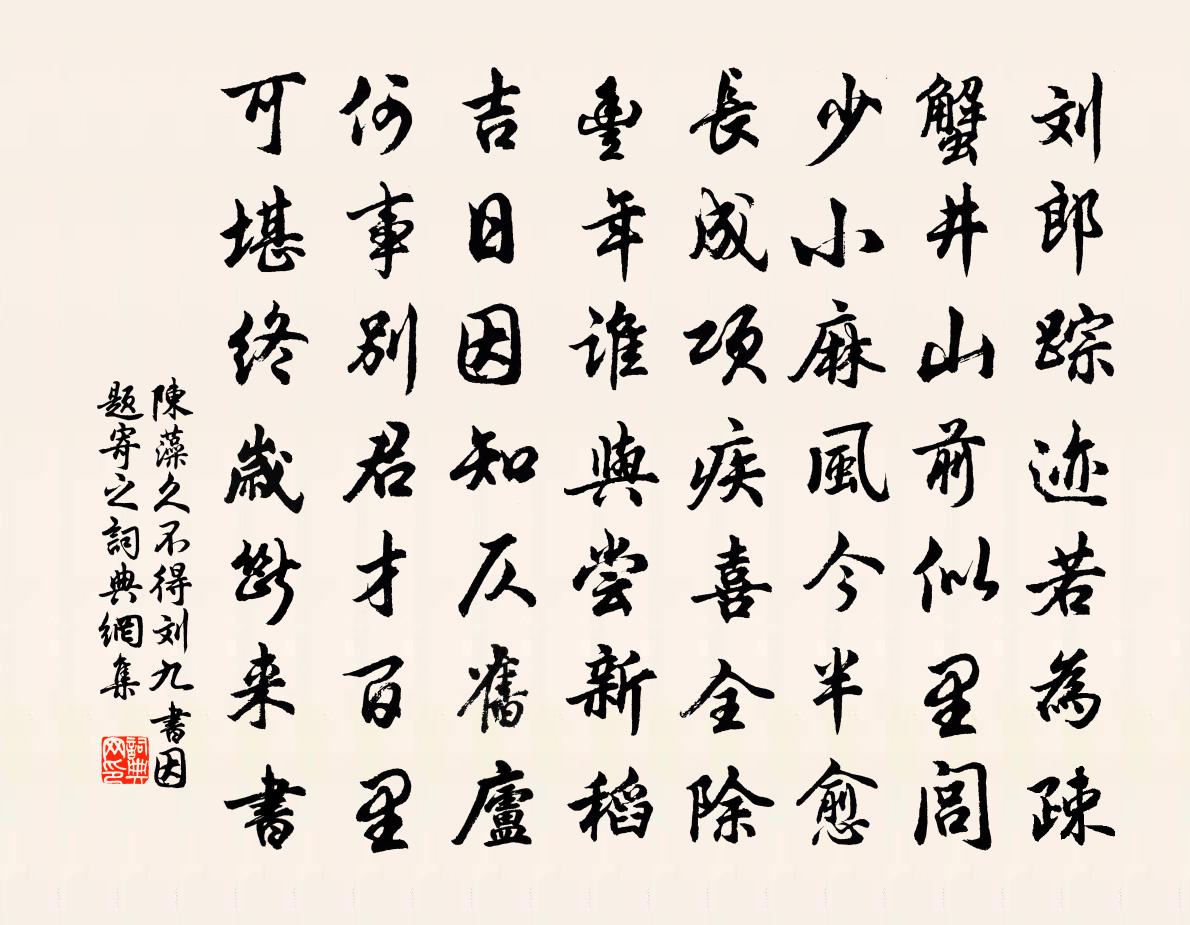 刘郎踪迹若為疎
蟹井山前似里閭
少小麻風今半愈
長成項疾喜全除
豊年誰與嘗新稻
吉日因知仄舊廬
何事別君才百里
可堪终歲斷来書
陳藻久不得刘九書因
题寄之詞典網集
詞典網印